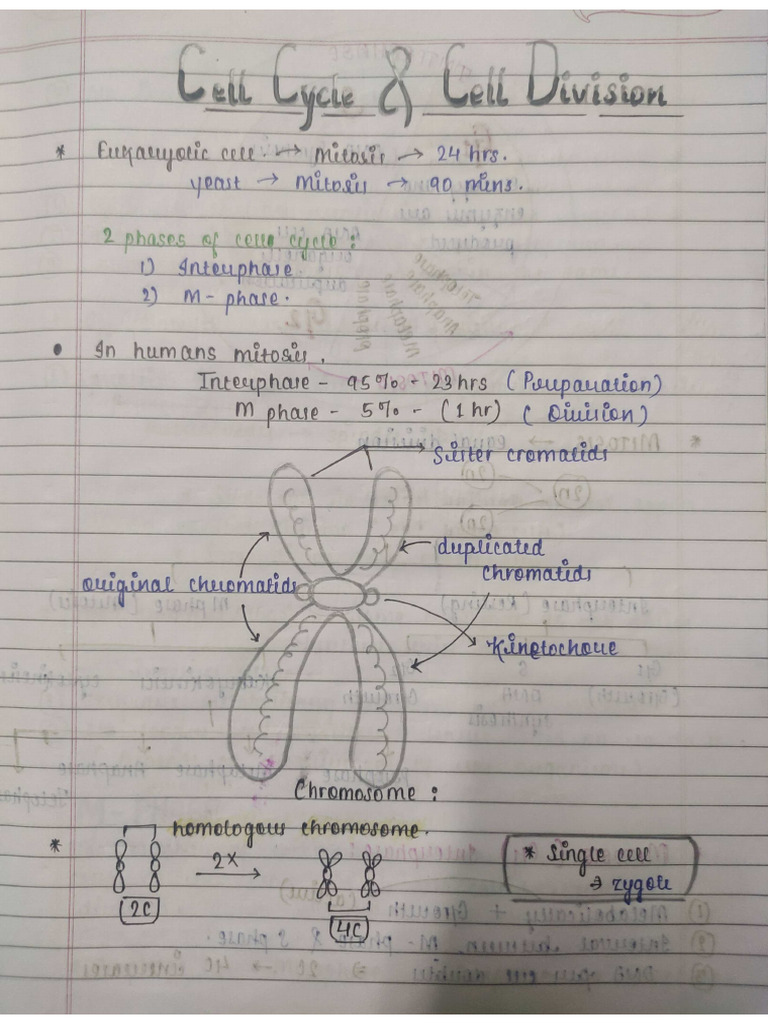 Cell Cycle & Cell Division
* Eukaryotic cell → mitosis → 24 hrs.
yeast → mitosis → 90 mins.
2 phases of cell cycle :
1) Interphase
2) M - phase.
• In humans mitosis.
Interphase - 95% - 23 hrs (Preparation)
M phase - 5% - (1 hr) (Division)
Sister cromatids
duplicated
chromatids
original chromatids
Kinetochore
Chromosome :
* homologous chromosome.
2x
2C
4C
* Single cell
→ zygote